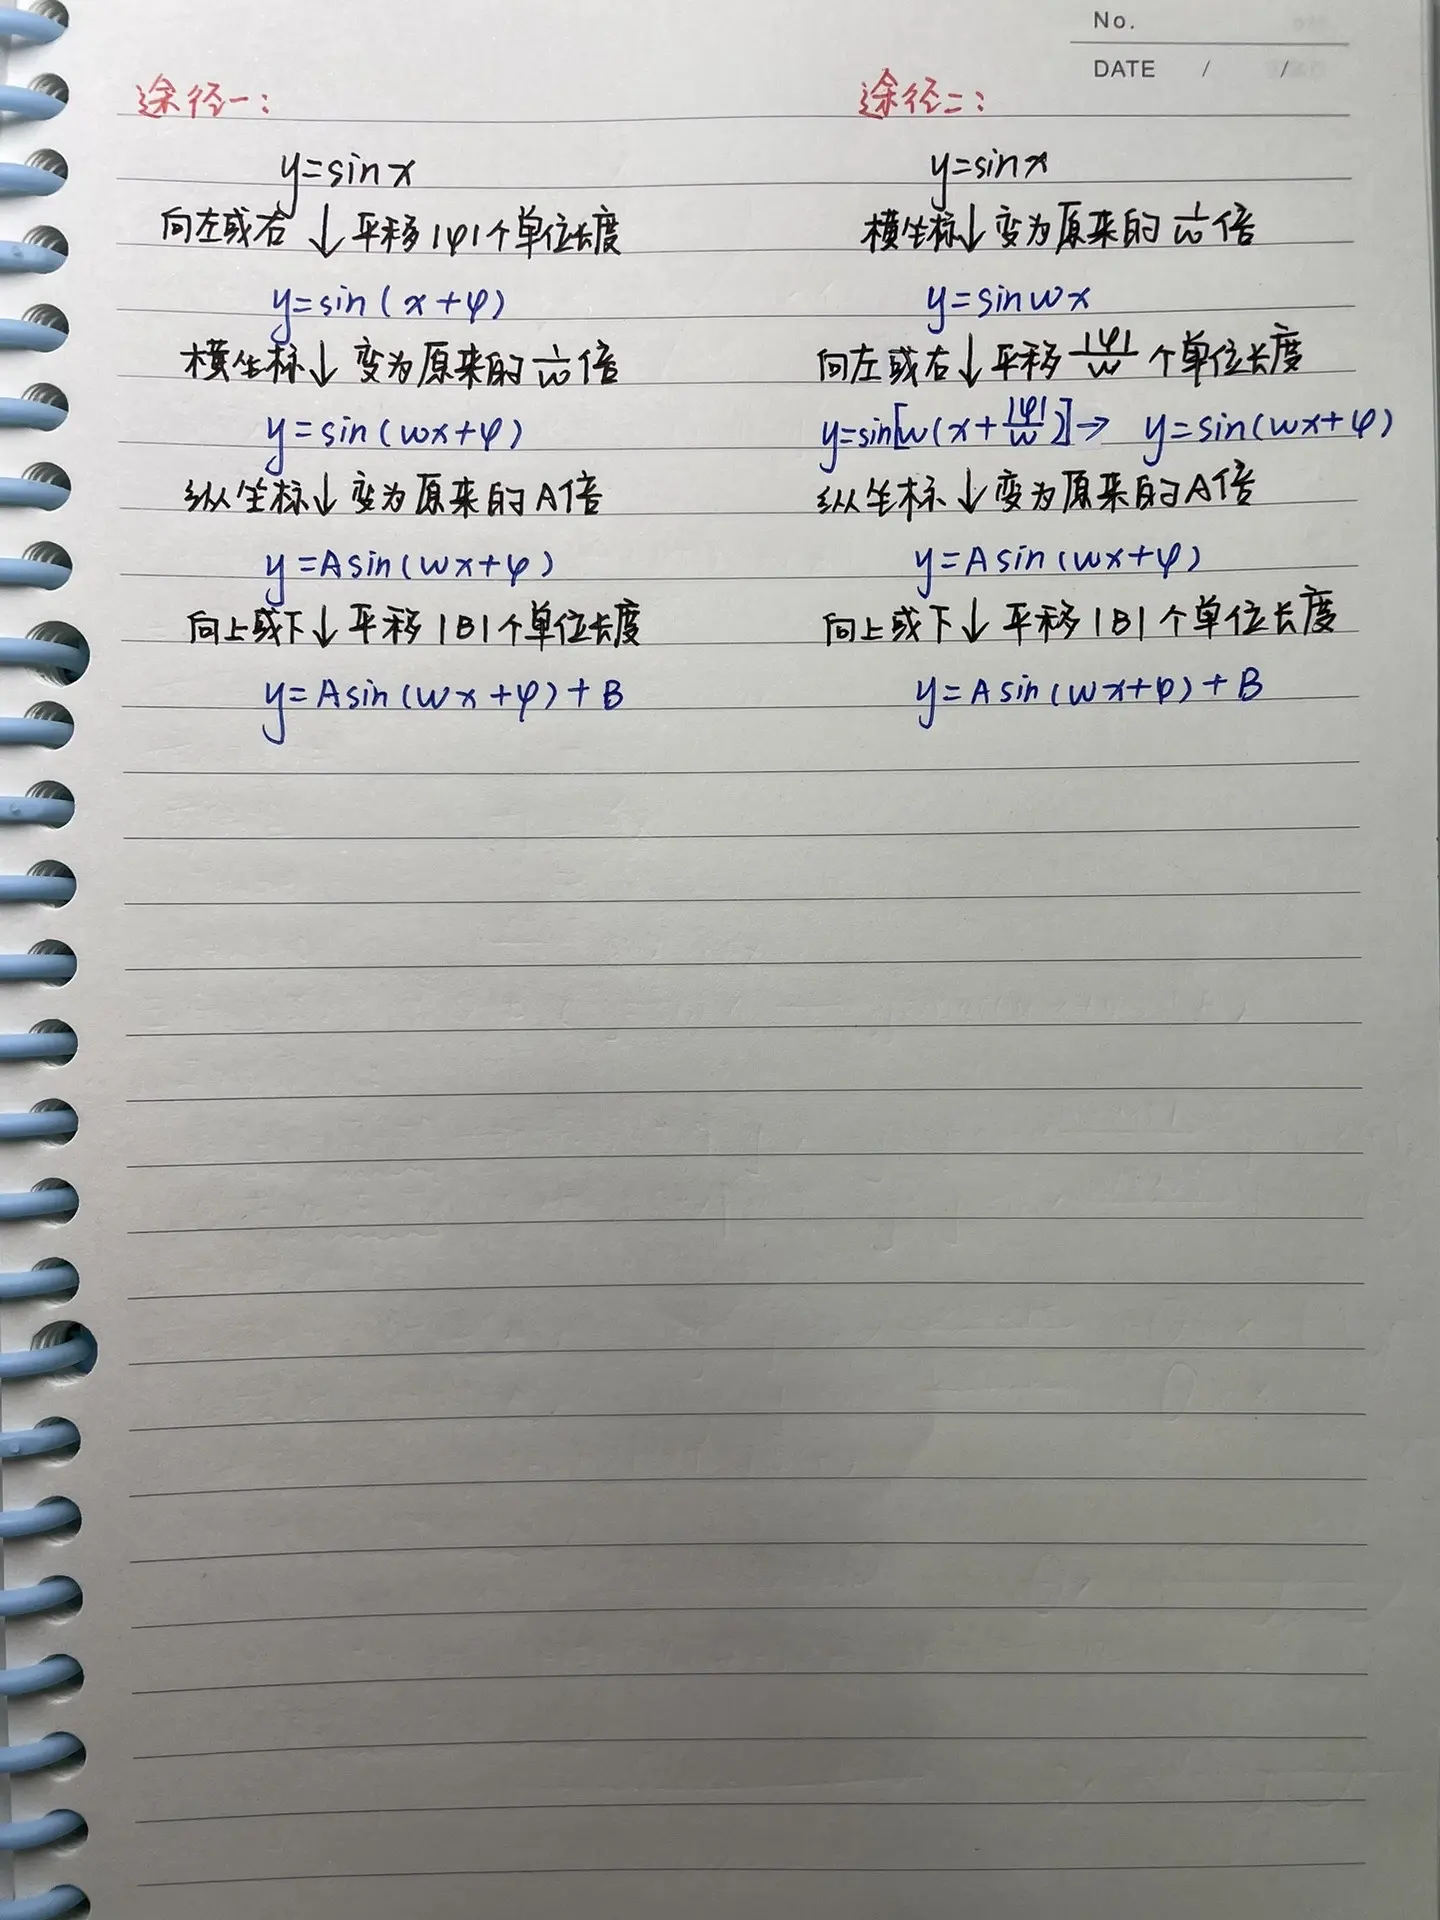 No.
DATE / /
途径一：
y=sinx
向左或右↓平移|φ|个单位长度
y=sin(x+φ)
横坐标↓变为原来的1/w倍
y=sin(wx+φ)
纵坐标↓变为原来的A倍
y=Asin(wx+φ)
向上或下↓平移|B|个单位长度
y=Asin(wx+φ)+B
途径二：
y=sinx
横坐标↓变为原来的1/w倍
y=sinwx
向左或右↓平移|φ|/w个单位长度
y=sin[w(x+|φ|/w)]→ y=sin(wx+φ)
纵坐标↓变为原来的A倍
y=Asin(wx+φ)
向上或下↓平移|B|个单位长度
y=Asin(wx+φ)+B